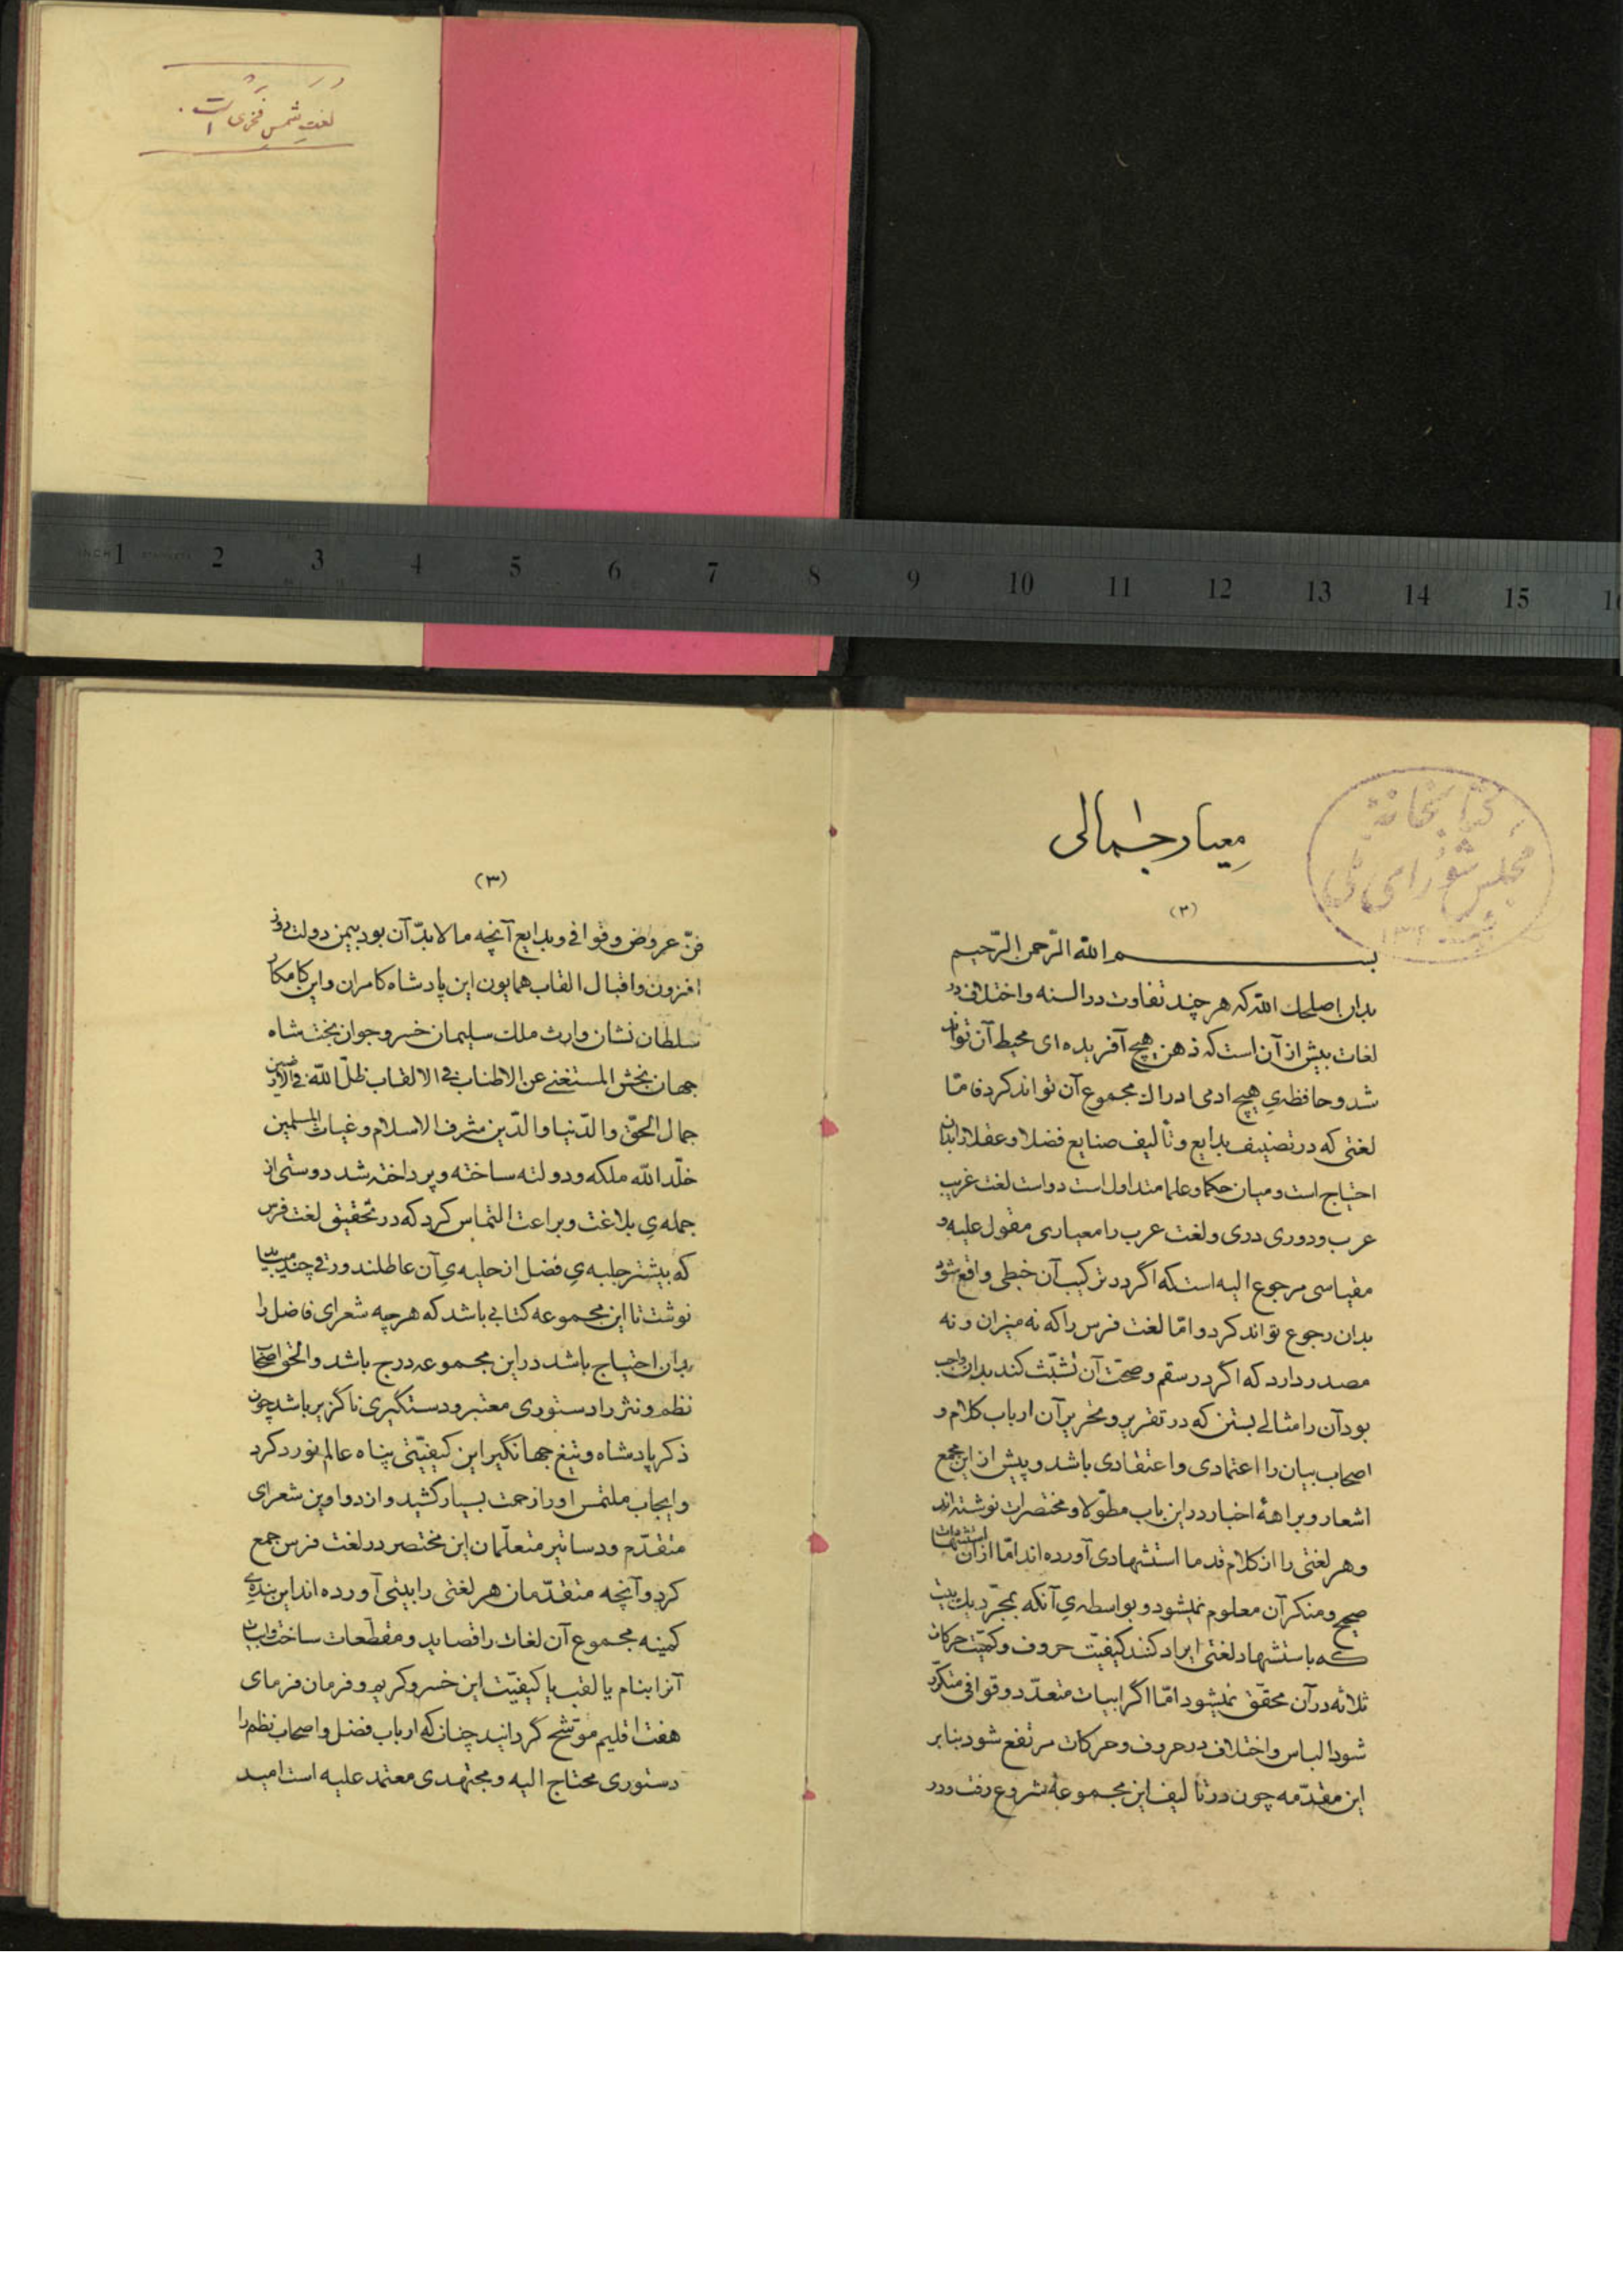 لغت شمس فخری است.
INCH 1 2 3 4 5 6 7 8 9 10 11 12 13 14 15 1
کتابخانهٔ
مجلس شورای ملی
معیار جمالی
(۲)
بسم الله الرّحمن الرّحیم
بدان اصلحك الله که هر چند تفاوت در السنه و اختلاف در
لغات بیش از آن است که ذهن هیچ آفریده ای محیط آن تواند
شد و حافظه‌یِ هیچ ادمی ادراك مجموع آن تواند کرد فامّا
لغتی که در تصنیف بدایع و تألیف صنایع فضلا و عقلا را بدان
احتیاج است و میان حکما و علما متداول است دو است لغت غریب
عرب و دوری دری و لغت عرب را معیاری مقول علیه و
مقیاسی مرجوع الیه است که اگر در ترکیب آن خبطی واقع شود
بدان رجوع تواند کرد و امّا لغت فرس را که نه میزان و نه
مصدر دارد که اگر در سقم و صحّت آن تشبّث کند بدان واجب
بود آن را مثالی بستن که در تقریر و تحریر آن ارباب کلام و
اصحاب بیان را اعتمادی و اعتقادی باشد و پیش از این مجمع
اشعار و براههٔ اخبار در این باب مطوّلا و مختصرات نوشته اند
و هر لغتی را از کلام قدما استشهادی آورده اند امّا از آن استشهاد
صحیح و منکر آن معلوم نمیشود و بواسطه‌یِ آنکه بمجرّد یك بیت
که باستشهاد لغتی ایراد کنند کیفیّت حروف و کمیّت حرکات
ثلاثه در آن محقّق نمیشود امّا اگر ابیات متعدّد و قوافی متکرّر
شود الباس و اختلاف در حروف و حرکات مرتفع شود بنابر
این مقدّمه چون در تألیف این مجموعه شروع رفت و در
(۳)
فنّ عروض و قوافی و بدایع آنچه ما لا بدّ آن بود بیمن دولت روز
افزون و اقبال القاب همایون این پادشاه کامران و این کامکار
سلطان نشان وارث ملك سلیمان خسرو جوان بخت شاه
جهان بخش المستغنی عن الاطناب فی الالقاب ظلّ الله فی الارضین
جمال الحقّ و الدّنیا و الدّین مشرف الاسلام و غیاث المسلمین
خلّد الله ملکه و دولته ساخته و پرداخته شد دوستی از
جمله‌یِ بلاغت و براعت التماس کرد که در تحقیق لغت فرس
که بیشتر جلبه‌یِ فضل از حلیه‌یِ آن عاطلند ورقی چند میباید
نوشت تا این مجموعه کتابی باشد که هر چه شعرای فاضل را
بدان احتیاج باشد در این مجموعه درج باشد و الحق اصحاب
نظم و نثر را دستوری معتبر و دستگیری ناگزیر باشد چون
ذکر پادشاه و تیغ جهانگیر این کیفیّتی پناه عالم نورد کرد
و ایجاب ملتمس او را زحمت بسیار کشید و از دواوین شعرای
متقدّم و دساتیر متعلّمان این مختصر در لغت فرس جمع
کرد و آنچه متقدّمان هر لغتی را بیتی آورده اند این بنده‌یِ
کمینه مجموع آن لغات را قصاید و مقطّعات ساخت و ابیات
آنرا بنام یا لقب یا کیفیّت این خسرو کریم و فرمان فرمای
هفت اقلیم موشّح گردانید چنان که ارباب فضل و اصحاب نظم را
دستوری محتاج الیه و مجتهدی معتمد علیه است امید